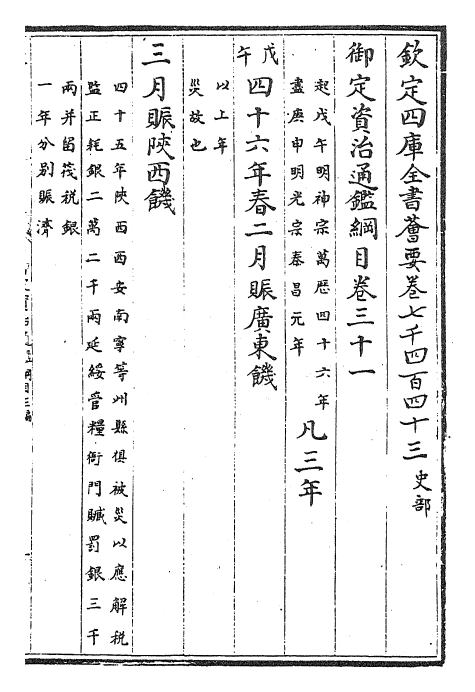 欽定四庫全書薈要卷七千四百四十三 史部
御定資治通鑑綱目卷三十一
起戊午明神宗萬歷四十六年
盡庚申明光宗泰昌元年 凡三年
戊午 四十六年春二月賑廣東饑
以上年
災故也
三月賑陜西饑
四十五年陜西西安南寧等州縣俱被災以應解税
監正耗銀二萬二千兩延綏管糧衙門贓罰銀三千
兩并留筏税銀
一年分别賑濟